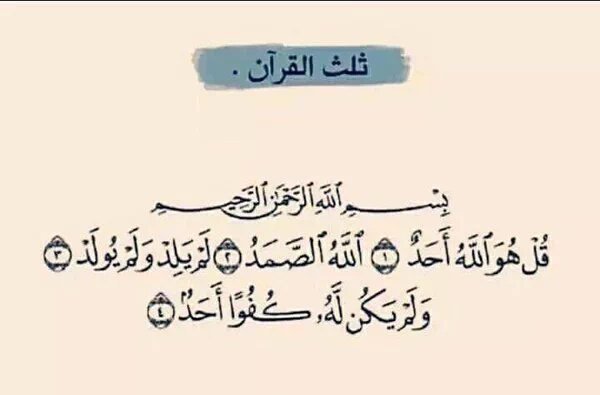 ثلث القرآن .
بِسْمِ اللَّهِ الرَّحْمَٰنِ الرَّحِيمِ
قُلْ هُوَ اللَّهُ أَحَدٌ ١ اللَّهُ الصَّمَدُ ٢ لَمْ يَلِدْ وَلَمْ يُولَدْ ٣
وَلَمْ يَكُن لَّهُۥ كُفُوًا أَحَدٌۢ ٤